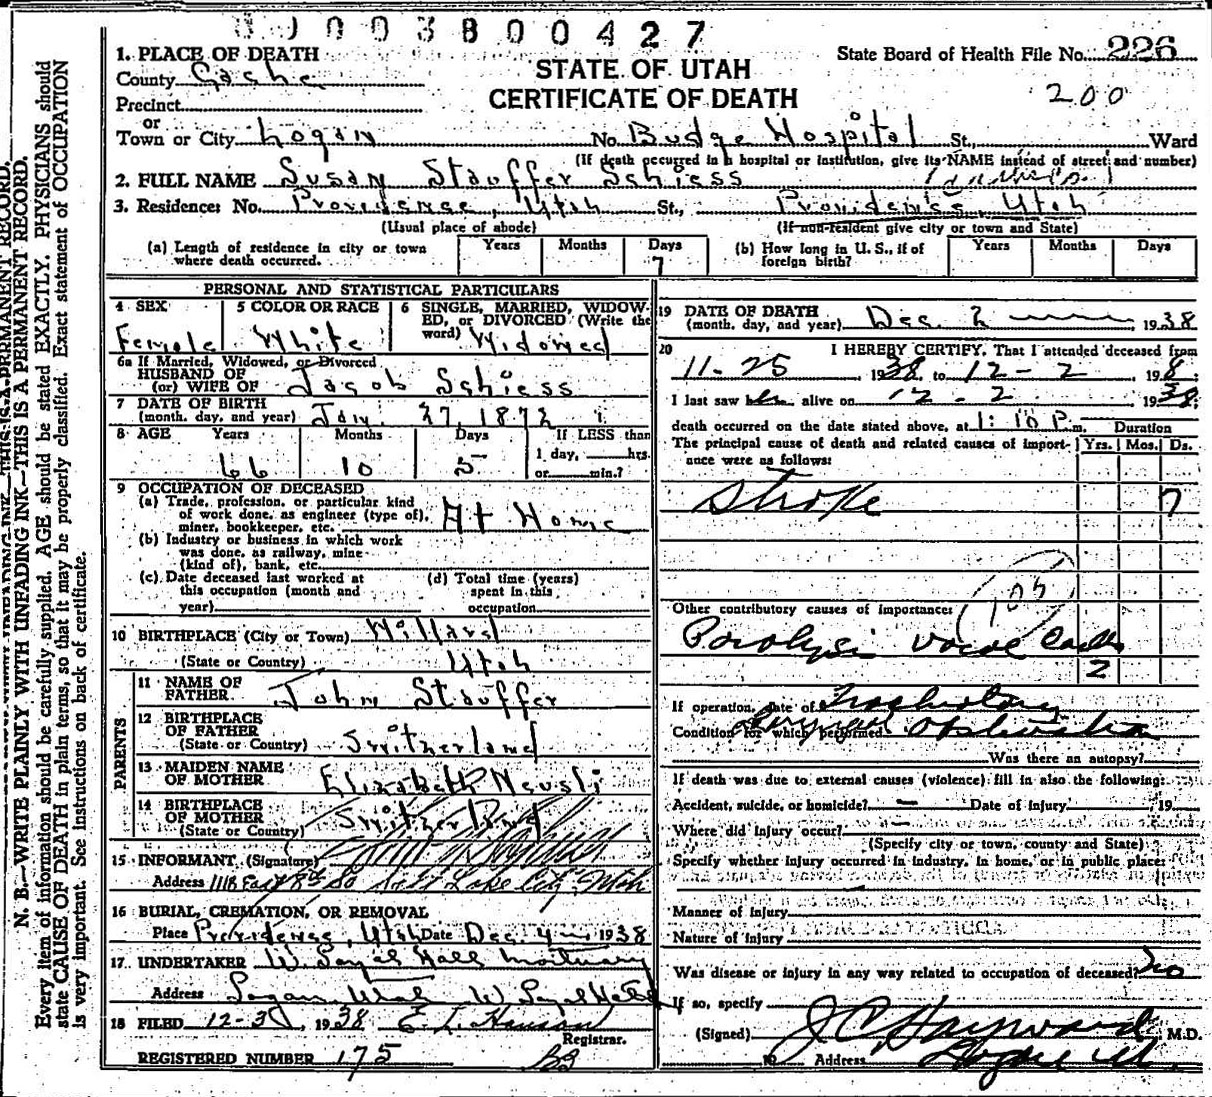 003800427
1. PLACE OF DEATH
State Board of Health File No. 226
County Cache
STATE OF UTAH
CERTIFICATE OF DEATH
200
Precinct
or
Town or City Logan No. Budge Hospital St., Ward
(If death occurred in a hospital or institution, give its NAME instead of street and number)
2. FULL NAME Susan Stauffer Schiess
3. Residence: No. Providence, Utah St., Providence, Utah
(Usual place of abode) (If non-resident give city or town and State)
(a) Length of residence in city or town where death occurred. Years Months Days 7
(b) How long in U. S., if of foreign birth? Years Months Days
PERSONAL AND STATISTICAL PARTICULARS
4 SEX Female
5 COLOR OR RACE White
6 SINGLE, MARRIED, WIDOW-
ED, or DIVORCED (Write the
word) Widowed
6a If Married, Widowed, or Divorced
HUSBAND OF
(or) WIFE OF Jacob Schiess
7 DATE OF BIRTH
(month, day, and year) Jan. 27, 1872
8 AGE Years Months Days If LESS than
66 10 5 1 day, hrs.
or min.?
9 OCCUPATION OF DECEASED
(a) Trade, profession, or particular kind
of work done, as engineer (type of),
miner, bookkeeper, etc. At Home
(b) Industry or business in which work
was done, as railway, mine
(kind of), bank, etc.
(c) Date deceased last worked at
occupation (month and
year)
(d) Total time (years)
spent in this
occupation
10 BIRTHPLACE (City or Town) Willard
(State or Country) Utah
PARENTS
11 NAME OF
FATHER John Stauffer
12 BIRTHPLACE
OF FATHER
(State or Country) Switzerland
13 MAIDEN NAME
OF MOTHER Elizabeth Neusli
14 BIRTHPLACE
OF MOTHER
(State or Country) Switzerland
15 INFORMANT (Signature)
Address 1118 East 8th So Salt Lake City Utah
16 BURIAL, CREMATION, OR REMOVAL
Place Providence, Utah Date Dec. 4 1938
17 UNDERTAKER W. Loyal Hall Mortuary
Address Logan, Utah W Loyal Hall
18 FILED 12-3, 1938 E. L. Hanson
Registrar.
REGISTERED NUMBER 175
19 DATE OF DEATH
(month, day, and year) Dec. 2, 1938
20 I HEREBY CERTIFY, That I attended deceased from
11-25, 1938 to 12-2, 1938
I last saw her alive on 12-2, 1938
death occurred on the date stated above, at 1:10 P.m. Duration
The principal cause of death and related causes of import-
ance were as follows: Yrs. Mos. Ds.
Stroke 7
Other contributory causes of importance:
Paralysis vocal cords
2
If operation, date of Tracheotomy
Condition for which performed Laryngeal Obstruction
Was there an autopsy?
If death was due to external causes (violence) fill in also the following:
Accident, suicide, or homicide? - Date of injury 19
Where did injury occur? -
(Specify city or town, county and State)
Specify whether injury occurred in industry, in home, or in public place:
Manner of injury
Nature of injury
Was disease or injury in any way related to occupation of deceased? no
If so, specify
(Signed) J C Hayward M.D.
19 Address Logan U.
N. B.—WRITE PLAINLY WITH UNFADING INK—THIS IS A PERMANENT RECORD.
Every item of information should be carefully supplied. AGE should be stated EXACTLY. PHYSICIANS should
state CAUSE OF DEATH in plain terms, so that it may be properly classified. Exact statement of OCCUPATION
is very important. See instructions on back of certificate.